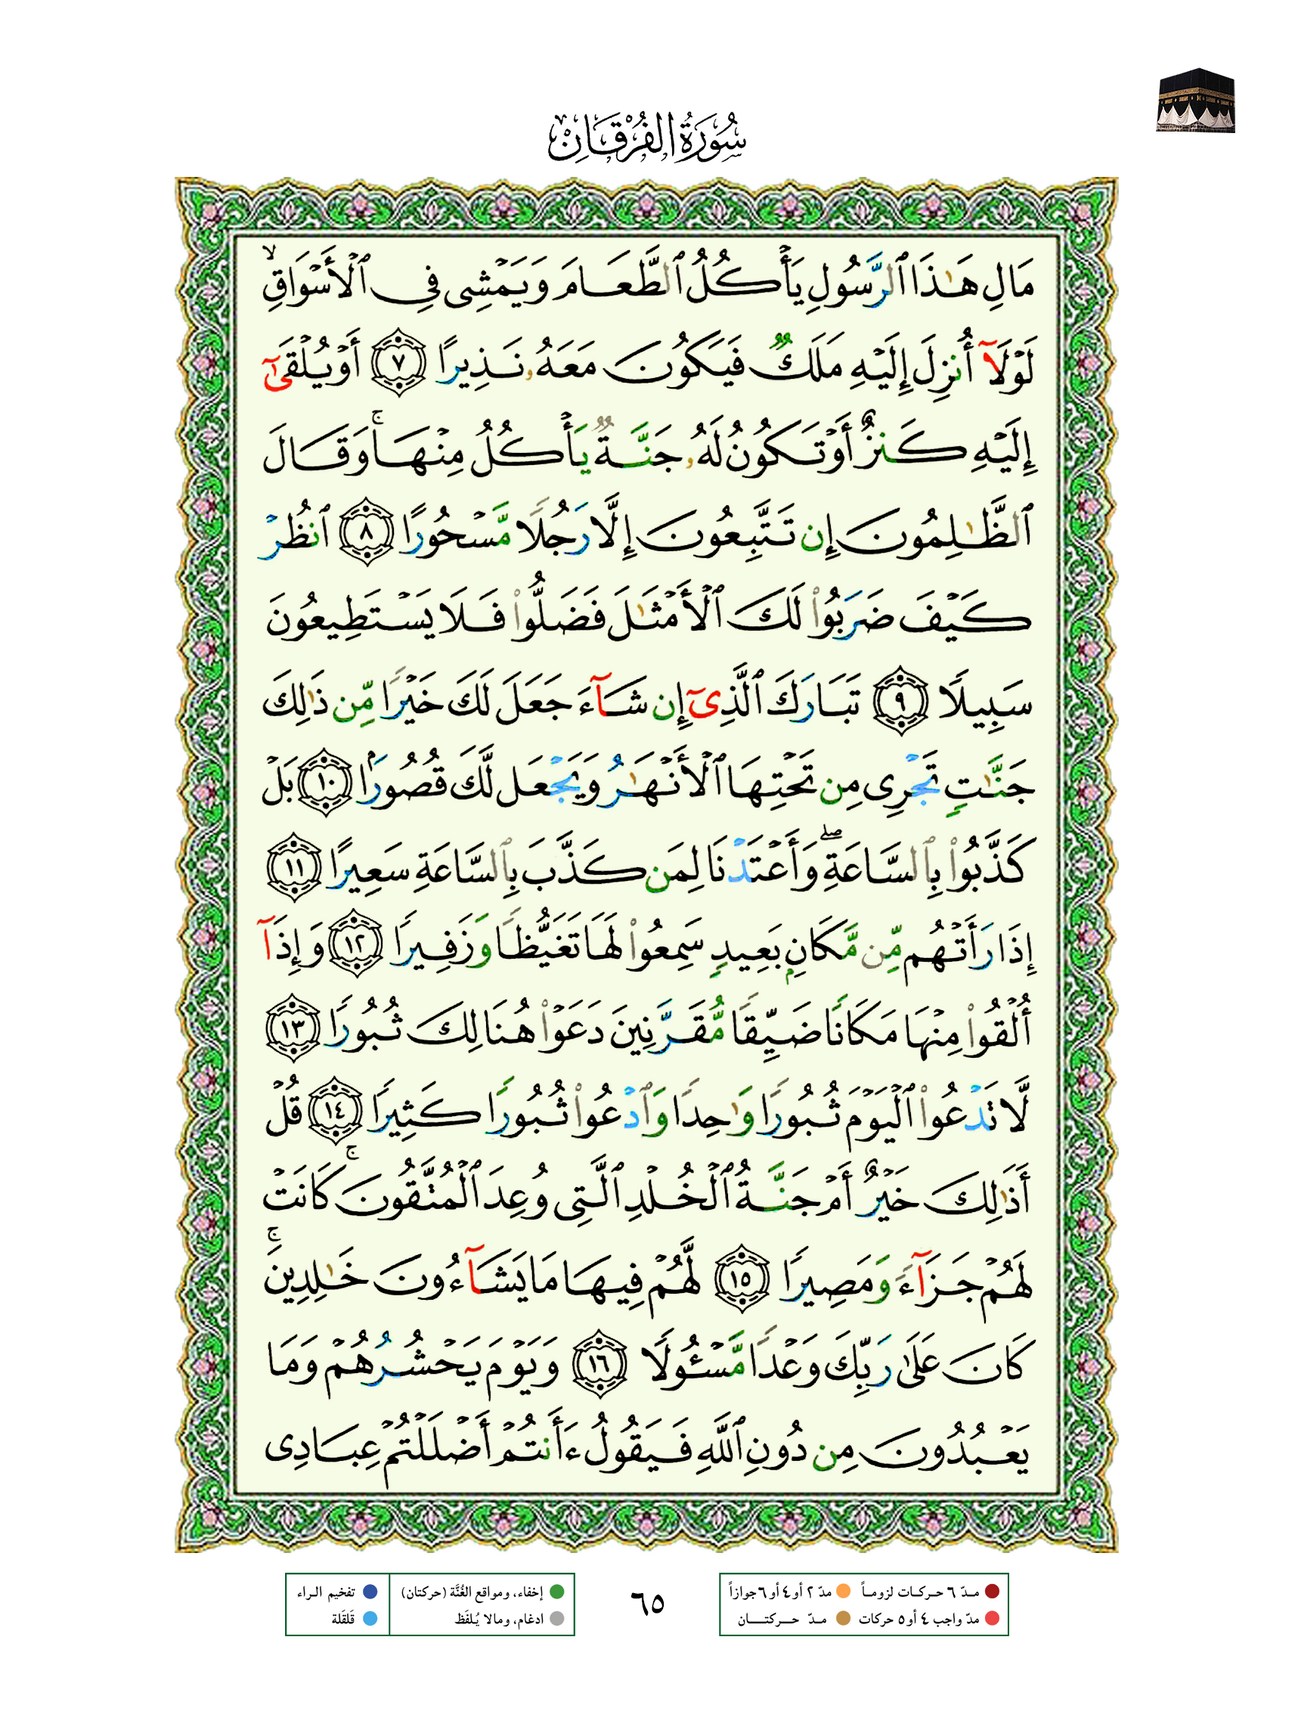 سُورَةُ الفُرْقَانِ
مَالِ هَٰذَا ٱلرَّسُولِ يَأْكُلُ ٱلطَّعَامَ وَيَمْشِى فِى ٱلْأَسْوَاقِ ۙ
لَوْلَآ أُنزِلَ إِلَيْهِ مَلَكٌ فَيَكُونَ مَعَهُۥ نَذِيرًا ٧ أَوْ يُلْقَىٰٓ
إِلَيْهِ كَنزٌ أَوْ تَكُونُ لَهُۥ جَنَّةٌ يَأْكُلُ مِنْهَا ۚ وَقَالَ
ٱلظَّٰلِمُونَ إِن تَتَّبِعُونَ إِلَّا رَجُلًا مَّسْحُورًا ٨ ٱنظُرْ
كَيْفَ ضَرَبُوا۟ لَكَ ٱلْأَمْثَٰلَ فَضَلُّوا۟ فَلَا يَسْتَطِيعُونَ
سَبِيلًا ٩ تَبَارَكَ ٱلَّذِىٓ إِن شَآءَ جَعَلَ لَكَ خَيْرًا مِّن ذَٰلِكَ
جَنَّٰتٍ تَجْرِى مِن تَحْتِهَا ٱلْأَنْهَٰرُ وَيَجْعَل لَّكَ قُصُورًۢا ١٠ بَلْ
كَذَّبُوا۟ بِٱلسَّاعَةِ ۖ وَأَعْتَدْنَا لِمَن كَذَّبَ بِٱلسَّاعَةِ سَعِيرًا ١١
إِذَا رَأَتْهُم مِّن مَّكَانٍۭ بَعِيدٍ سَمِعُوا۟ لَهَا تَغَيُّظًا وَزَفِيرًا ١٢ وَإِذَآ
أُلْقُوا۟ مِنْهَا مَكَانًا ضَيِّقًا مُّقَرَّنِينَ دَعَوْا۟ هُنَالِكَ ثُبُورًا ١٣
لَّا تَدْعُوا۟ ٱلْيَوْمَ ثُبُورًا وَٰحِدًا وَٱدْعُوا۟ ثُبُورًا كَثِيرًا ١٤ قُلْ
أَذَٰلِكَ خَيْرٌ أَمْ جَنَّةُ ٱلْخُلْدِ ٱلَّتِى وُعِدَ ٱلْمُتَّقُونَ ۚ كَانَتْ
لَهُمْ جَزَآءً وَمَصِيرًا ١٥ لَّهُمْ فِيهَا مَا يَشَآءُونَ خَٰلِدِينَ ۚ
كَانَ عَلَىٰ رَبِّكَ وَعْدًا مَّسْـُٔولًا ١٦ وَيَوْمَ يَحْشُرُهُمْ وَمَا
يَعْبُدُونَ مِن دُونِ ٱللَّهِ فَيَقُولُ ءَأَنتُمْ أَضْلَلْتُمْ عِبَادِى
مدّ ٦ حركات لزوماً مدّ ٢ أو ٤ أو ٦ جوازاً
مدّ واجب ٤ أو ٥ حركات مدّ حركتان
٦٥
إخفاء، ومواقع الغُنَّة (حركتان) تفخيم الراء
ادغام، ومالا يُلفَظ قَلقَلة